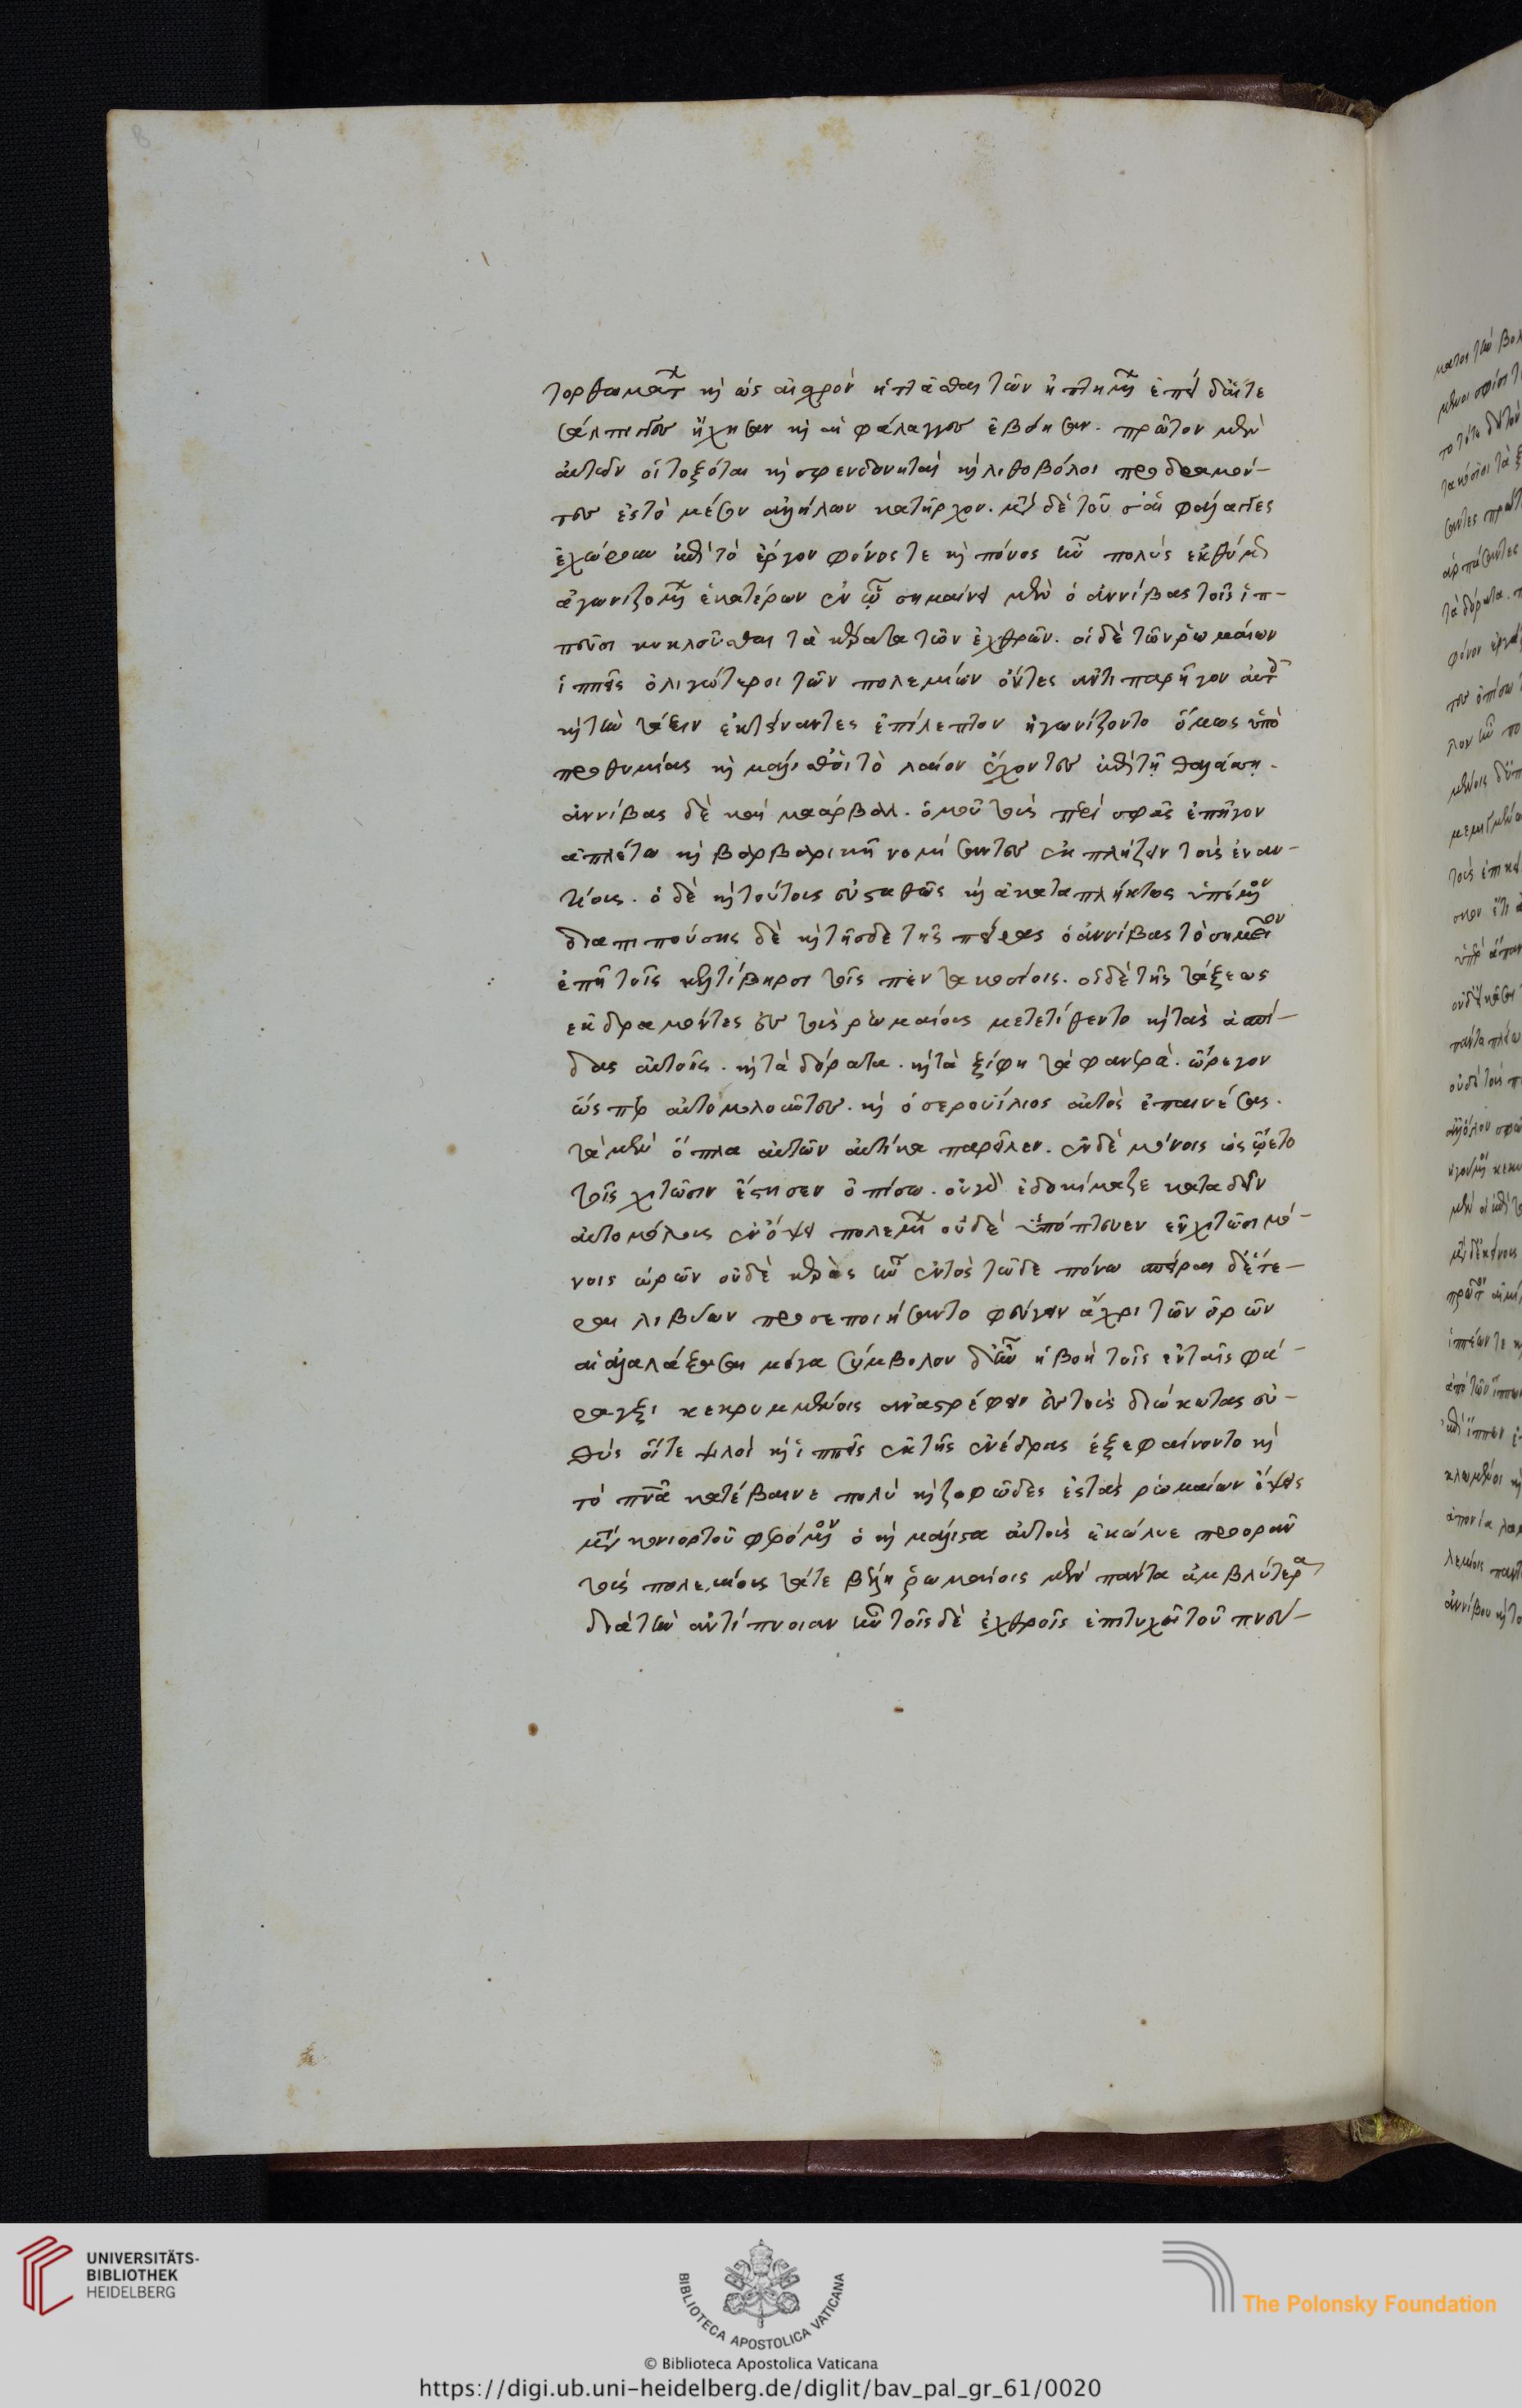 τορθωμάτων καὶ ὡς αἰσχρὸν ἡττᾶσθαι τῶν ἡττημένων ἐπεὶ δ' αἵ τε
σάλπιγγες ἤχησαν καὶ αἱ φάλαγγες ἐβόησαν. πρῶτον μὲν
αὐτῶν οἱ τοξόται καὶ σφενδονηταὶ καὶ λιθοβόλοι προδραμόν-
τες ἐς τὸ μέσον ἀλλήλων κατῆρχον. μετὰ δὲ τοῦ αἱ φάλαγγες
ἐχώρουν ἐπὶ τὸ ἔργον φόνος τε καὶ πόνος ἦν πολὺς ἐκθύμως
ἀγωνιζομένων ἑκατέρων ἐν ᾧ σημαίνει μὲν ὁ ἀννίβας τοῖς ἱπ-
πεῦσι κυκλοῦσθαι τὰ κέρατα τῶν ἐχθρῶν. οἱ δὲ τῶν ῥωμαίων
ἱππεῖς ὀλιγώτεροι τῶν πολεμίων ὄντες ἀντιπαρῆγον αὐτοῖς
καὶ τὴν τάξιν ἐκτείναντες ἐπίλεπτον ἠγωνίζοντο ὅμως ὑπὸ
προθυμίας καὶ μάλισθ' οἱ τὸ λαιὸν ἔχοντες ἐπὶ τῇ θαλάσσῃ.
ἀννίβας δὲ καὶ μαάρβαλ. ὁμοῦ τοὺς περὶ σφᾶς ἐπῆγον
ἀπλέτω καὶ βαρβαρικῆ νομίσαντες ἐκπλήξειν τοὺς ἐναν-
τίους. ὁ δὲ καὶ τούτους εὐσταθῶς καὶ ἀκαταπλήκτως ὑπέμενον
διαπιπτούσης δὲ καὶ τῆσδε τῆς πείρας ὁ ἀννίβας τὸ σημεῖον
ἐπῆ τοῖς κελτίβηρσι τοῖς πεντακοσίοις. οἱ δὲ τῆς τάξεως
ἐκδραμόντες ἐς τοὺς ῥωμαίους μετετίθεντο καὶ τὰς ἀσπί-
δας αὐτοῖς. καὶ τὰ δόρατα. καὶ τὰ ξίφη τὰ φανερὰ. ὤρεγον
ὥσπερ αὐτομολοῦντες. καὶ ὁ σερουΐλιος αὐτοὺς ἐπαινέσας.
τὰ μὲν ὅπλα αὐτῶν αὐτίκα παρεῖλεν. ἐν δὲ μόνοις ὡς ᾤετο
τοῖς χιτῶσιν ἔστησεν ὀπίσω. οὐ γὰρ ἐδοκίμαζε καταδεῖν
αὐτομόλους ἐν ὄψει πολεμίων οὐδὲ ὑπόπτευεν ἐν χιτῶσι μό-
νοις ὡρῶν οὐδὲ κέρας ἦν ἐντὸς τῶδε πόνω σπεῖραι δ' ἕτε-
ραι λιβύων προσεποιήσαντο φεύγειν ἄχρι τῶν ὀρῶν
αἱ ἀλαλάξασαι μέγα σύμβολον δ' ἦν ἡ βοὴ τοῖς ἐν ταῖς φά-
ραγξι κεκρυμμένοις ἀναστρέφειν ἐς τοὺς διώκοντας εὐ-
θὺς οἵ τε ψιλοὶ καὶ ἱππεῖς ἐκ τῆς ἐνέδρας ἐξεφαίνοντο καὶ
τὸ πνᾶ κατέβαινε πολὺ καὶ ζοφῶδες ἐς τὰς ῥωμαίων ὄψεις
μετὰ κονιορτοῦ φερόμενον ὃ καὶ μάλιστα αὐτοὺς ἐκώλυε προορᾶν
τοὺς πολεμίους τά τε βέλη ῥωμαίοις μὲν πάντα ἀμβλύτερα
διὰ τὴν ἀντίπνοιαν ἦν τοῖς δὲ ἐχθροῖς ἐπιτυχῆ τοῦ πνεύ-
UNIVERSITÄTS-
BIBLIOTHEK
HEIDELBERG
BIBLIOTECA APOSTOLICA VATICANA
The Polonsky Foundation
© Biblioteca Apostolica Vaticana
https://digi.ub.uni-heidelberg.de/diglit/bav_pal_gr_61/0020